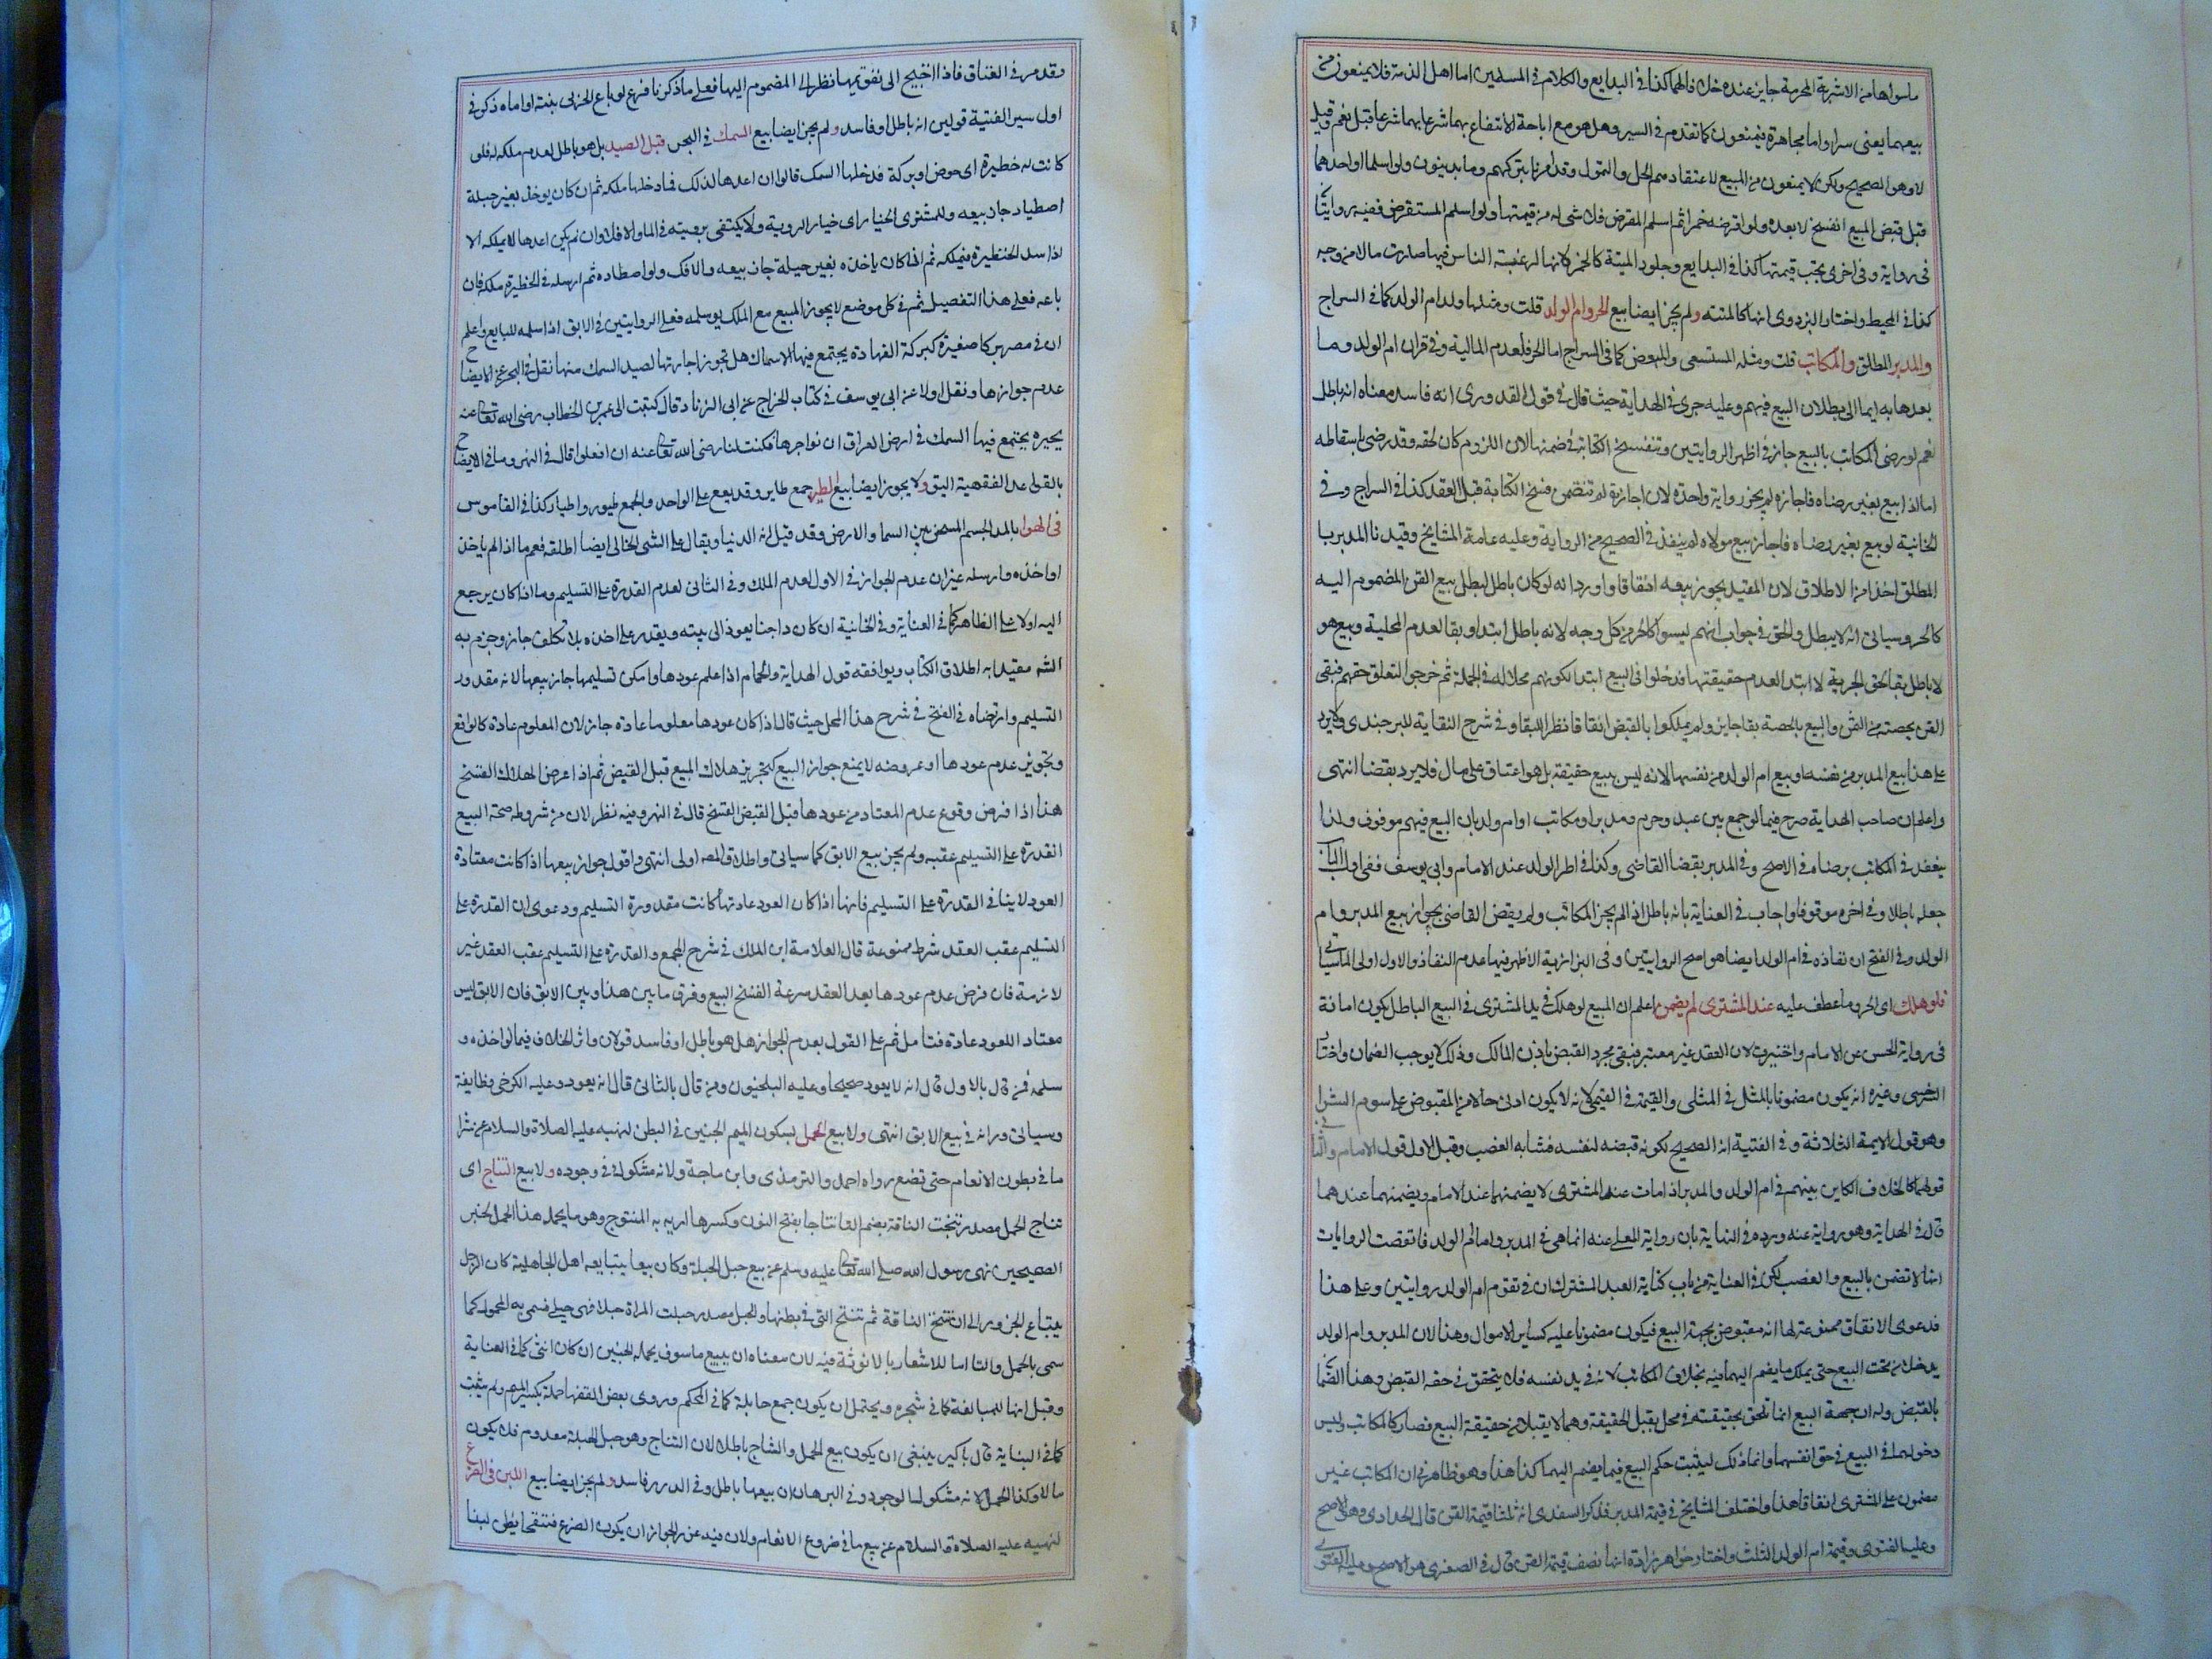 ماسواها من الاشربة المحرمة جايز عنده خلافا لهما كذا في البدايع والكلام في المسلمين اما اهل الذمة فلا يمنعون من
بيعهما يعني سرا واما مجاهرة فيمنعون كما تقدم في السير وهل هو مع اباحة الانتفاع بهما شرعا قيل نعم وقيل
لا وهو الصحيح ولكن لا يمنعون من البيع لاعتقادهم الحل والتمول وقد امرنا بتركهم وما يدينون ولو اسلما او احدهما
قبل قبض المبيع انفسخ لا بعده ولو اقرضه خمرا ثم اسلم المقرض فلا شي له من قيمتها ولو اسلم المستقرض ففيه روايتان
في رواية وفي اخرى يجب قيمتها كذا في البدايع وجلود الميتة كالخمر لانها لرغبة الناس فيها صارت مالا من وجه
كذا في المحيط واختار البزدوي انها كالميتة ولم يجز ايضا بيع الحر وام الولد قلت ومثلها ولد ام الولد كما في السراج
والمدبر المطلق والمكاتب قلت ومثله المستسعى والمبعض كما في السراج اما الحر فلعدم المالية وفي قران ام الولد وما
بعدها به ايما الى بطلان البيع فيهم وعليه جرى في الهداية حيث قال في قول القدوري انه فاسد معناه انه باطل
نعم لو رضي المكاتب بالبيع جاز في اظهر الروايتين وتنفسخ الكتابة في ضمنها لان اللزوم كان لحقه وقد رضي باسقاطه
اما اذا بيع بغير رضاه فاجازه لم يجز رواية واحدة لان اجازته لم تتضمن فسخ الكتابة قبل العقد كذا في السراج وفي
الخانية لو بيع بغير رضاه فاجاز بيع مولاه لم ينفذ في الصحيح من الرواية وعليه عامة المشايخ وقيدنا المدبر با
المطلق اخذا من الاطلاق لان المقيد يجوز بيعه اتفاقا واورد انه لو كان باطل لبطل بيع القن المضموم اليه
كالحر وسياتي انه لا يبطل والحق في جواب انهم ليسوا كالحر من كل وجه لانه باطل ابتدا وبقا لعدم المحلية وبيع هو
لا باطل بقا لحق الحرية لا ابتدا لعدم حقيقتها فدخلوا في البيع ابتدا لكونهم محلا له في الجملة ثم خرجوا لتعلق حقهم فبقي
القن بحصته من الثمن والبيع بالحصة بقا جايز ولم يملكوا بالقبض اتفاقا نظرا للبقا وفي شرح النقاية للبرجندي ولا يرد
على هذا بيع المدبر من نفسه وبيع ام الولد من نفسها لانه ليس ببيع حقيقة بل هو اعتاق على مال فلا يرد بقضا انتهى
واعلم ان صاحب الهداية صرح فيما لو جمع بين عبد وحر ومدبر او مكاتب او ام ولد بان البيع فيهم موقوف ولذا
ينفذ في المكاتب برضاه في الاصح وفي المدبر بقضا القاضي وكذا في ام الولد عند الامام وابي يوسف ففي اول الباب
جعله باطلا وفي اخره موقوفا واجاب في العناية بانه باطل اذا لم يجز المكاتب ولم يقض القاضي بجواز بيع المدبر وام
الولد وفي الفتح ان نفاذه في ام الولد ايضا هو اصح الروايتين وفي البزازية الاظهر فيها عدم النفاذ والاول اولى لما سياتي
فلو هلك اي الحر وما عطف عليه عند المشتري لم يضمن اعلم ان المبيع لو هلك في يد المشتري في البيع الباطل يكون امانة
في رواية الحسن عن الامام واختيرت لان العقد غير معتبر فبقي مجرد القبض باذن المالك وذلك لا يوجب الضمان واختار
السرخسي وغيره انه يكون مضمونا بالمثل في المثلي والقيمة في القيمي لانه لا يكون ادنى حالا من المقبوض على سوم الشرا
وهو قول الايمة الثلاثة وفي القنية انه الصحيح لكونه قبضه لنفسه فشابه الغصب وقيل الاول قول الامام والثاني
قولهما كالخلاف الكاين بينهم في ام الولد والمدبر اذا مات عند المشتري لا يضمنهما عند الامام ويضمنهما عندهما
قال في الهداية وهو رواية عنه ورده في النهاية بان رواية المعلى عنه انما هي في المدبر واما ام الولد فاتفقت الروايات
انها لا تضمن بالبيع والغصب لكن في العناية من باب كتابة العبد المشترك ان في تقوم ام الولد روايتين وعلى هذا
فدعوى الاتفاق ممنوعة لهما انه مقبوض بجهة البيع فيكون مضمونا عليه كساير الاموال وهذا لان المدبر وام الولد
يدخلان تحت البيع حتى يملك ما يضم اليهما فيه بخلاف المكاتب لانه في يد نفسه فلا يتحقق في حقه القبض وهذا الضمان
بالقبض وله ان جهة البيع انما تلحق بحقيقته في محل يقبل الحقيقة وهما لا يقبلان حقيقة البيع فصار كالمكاتب وليس
دخولهما في البيع في حق انفسهما وانما ذلك ليثبت حكم البيع فيما يضم اليهما كذا هذا وهو ظاهر في ان المكاتب غير
مضمون على المشتري اتفاقا هذا واختلف المشايخ في قيمة المدبر فذكر السغدي انه ثلثا قيمة القن قال الحدادي وهو الاصح
وعليه الفتوى وقيمة ام الولد الثلث واختار خواهر زاده انها نصف قيمة القن قال في الصغرى هو الاصح وعليه الفتوى
وقد مر في العتاق فاذا احتيج الى تقويمها نظرا الى المضموم اليها فعلى ما ذكرنا فرع لو باع الحربي بنته او اماه ذكر في
اول سير القنية قولين انه باطل او فاسد ولم يجز ايضا بيع السمك في البحر قبل الصيد بل هو باطل لعدم ملكه له فلو
كانت له خطيرة اي حوض او بركة فدخلها السمك قالوا ان اعدها لذلك فما دخلها ملكه ثم ان كان يوخذ بغير حيلة
اصطياد جاز بيعه وللمشتري الخيار اي خيار الروية ولا يكتفى برويته في الما والا فلا وان لم يكن اعدها لا يملكه الا
اذا سد الحنظيرة فيملكه ثم اذا كان ياخذه بغير حيلة جاز بيعه والا فلا ولو اصطاده ثم ارسله في الحظيرة ملكه فان
باعه فعلى هذا التفصيل ثم في كل موضع لا يجوز البيع مع الملك لو سلمه فعلى الروايتين في الابق اذا سلمه للبايع واعلم
ان في مصر بركا صغيرة كبركة الفهادة يجتمع فيها الاسماك هل تجوز اجارتها لصيد السمك منها نقل في البحر عن الايضاح
عدم جوازها ونقل اولا عن ابي يوسف في كتاب الخراج عن ابي الزناد قال كتبت الى عمر بن الخطاب رضي الله تعالى عنه
بحيرة يجتمع فيها السمك في ارض العراق ان نواجرها فكتب لنا رضي الله تعالى عنه ان افعلوا قال في النهر وما في الايضاح
بالقواعد الفقهية اليق ولا يجوز ايضا بيع الطير جمع طاير وقد يقع على الواحد والجمع طيور واطيار كذا في القاموس
في الهوا بالمد الجسم المسخر بين السما والارض وقد قيل انه الدنيا ويقال على الشي الخالي ايضا اطلقه فعم ما اذا لم ياخذه
او اخذه وارسله غير ان عدم الجواز في الاول لعدم الملك وفي الثاني لعدم القدرة على التسليم وما اذا كان يرجع
اليه اولا على الظاهر كما في العناية وفي الخانية ان كان داجنا يعود الى بيته ويقدر على اخذه بلا تكلف جاز وجزم به
الشه مقيدا به اطلاق الكتاب ويوافقه قول الهداية والحمام اذا علم عودها وامكن تسليمها جاز بيعها لانه مقدور
التسليم وارتضاه في الفتح في شرح هذا المحل حيث قال اذا كان عودها معلوما عادة جاز لان المعلوم عادة كالواقع
وتجويز عدم عودها او عروضه لا يمنع جواز البيع كتجويز هلاك المبيع قبل القبض ثم اذا عرض الهلاك انفسخ
هذا اذا فرض وقوع عدم المعتاد من عودها قبل القبض انفسخ قال في النهر وفيه نظر لان من شروط صحة البيع
القدرة على التسليم عقبه ولم يجز بيع الابق كما سياتي واطلاق المصه اولى انتهى واقول جواز بيعها اذا كانت معتادة
العود لا ينافي القدرة على التسليم فانها اذا كان العود عادتها كانت مقدورة التسليم ودعوى ان القدرة على
التسليم عقب العقد شرط ممنوعة قال العلامة ابن الملك في شرح المجمع والقدرة على التسليم عقب العقد غير
لازمة فان فرض عدم عودها بعد العقد سرعة انفسخ البيع وفرق ما بين هذا وبين الابق فان الابق ليس
معتاد العود عادة فتامل ثم على القول بعدم الجواز هل هو باطل او فاسد قولان واثر الخلاف فيما لو اخذه و
سلمه فمن قال بالاول قال انه لا يعود صحيحا وعليه البلخيون ومن قال بالثاني قال انه يعود وعليه الكرخي وطايفة
وسياتي ورانه في بيع الابق انتهى ولا بيع الحمل بسكون الميم الجنين في البطن لنهيه عليه الصلاة والسلام عن شرا
ما في بطون الانعام حتى تضع رواه احمد والترمذي وابن ماجة ولانه مشكوك في وجوده ولا بيع النتاج اي
نتاج الحمل مصدر نتجت الناقة بضم الفا نتاجا بفتح النون وكسرها اريد به المنتوج وهو ما يحمله هذا الحمل لخبر
الصحيحين نهى رسول الله صلى الله تعالى عليه وسلم عن بيع حبل الحبلة وكان بيعا يتبايعه اهل الجاهلية كان الرجل
يبتاع الجزور الى ان تنتج الناقة ثم تنتج التي في بطنها والحبل مصدر حبلت المراة حبلا فهي حبلى فسمي به المحمول كما
سمي بالحمل والتا اما للاشعار بالانوثة فيه لان معناه ان يبيع ما سوف يحمله الجنين ان كان انثى كما في العناية
وقيل انها للمبالغة كما في شجره ويحتمل ان يكون جمع حابلة كما في المحكم وروى بعض الفقها حملة بكسر الميم ولم يثبت
كما في البناية قال باكير ينبغي ان يكون بيع الحمل والنتاج باطلا لان النتاج وهو حبل الحبلة معدوم فلا يكون
مالا وكذا الحمل لانه مشكوك الوجود وفي البرهان ان بيعها باطل وفي الدرر فاسد ولم يجز ايضا بيع اللبن في الضرع
لنهيه عليه الصلاة والسلام عن بيع ما في ضروع الانعام ولان فيه غررا لجواز ان يكون الضرع منتفخا يظن لبنا